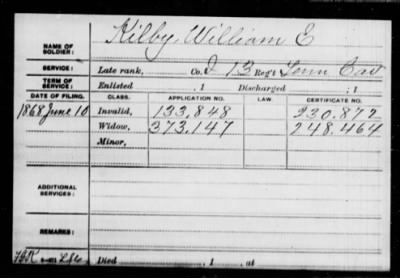 NAME OF SOLDIER: Kilby, William E
SERVICE: Late rank, Co. I 13 Reg't Tenn Cav
TERM OF SERVICE: Enlisted , 1 Discharged , 1
DATE OF FILING. CLASS. APPLICATION NO. LAW. CERTIFICATE NO.
1868 June 10 Invalid, 133,848 230.872
Widow, 373,147 248.464
Minor,
ADDITIONAL SERVICES:
REMARKS:
Died , 1 , at